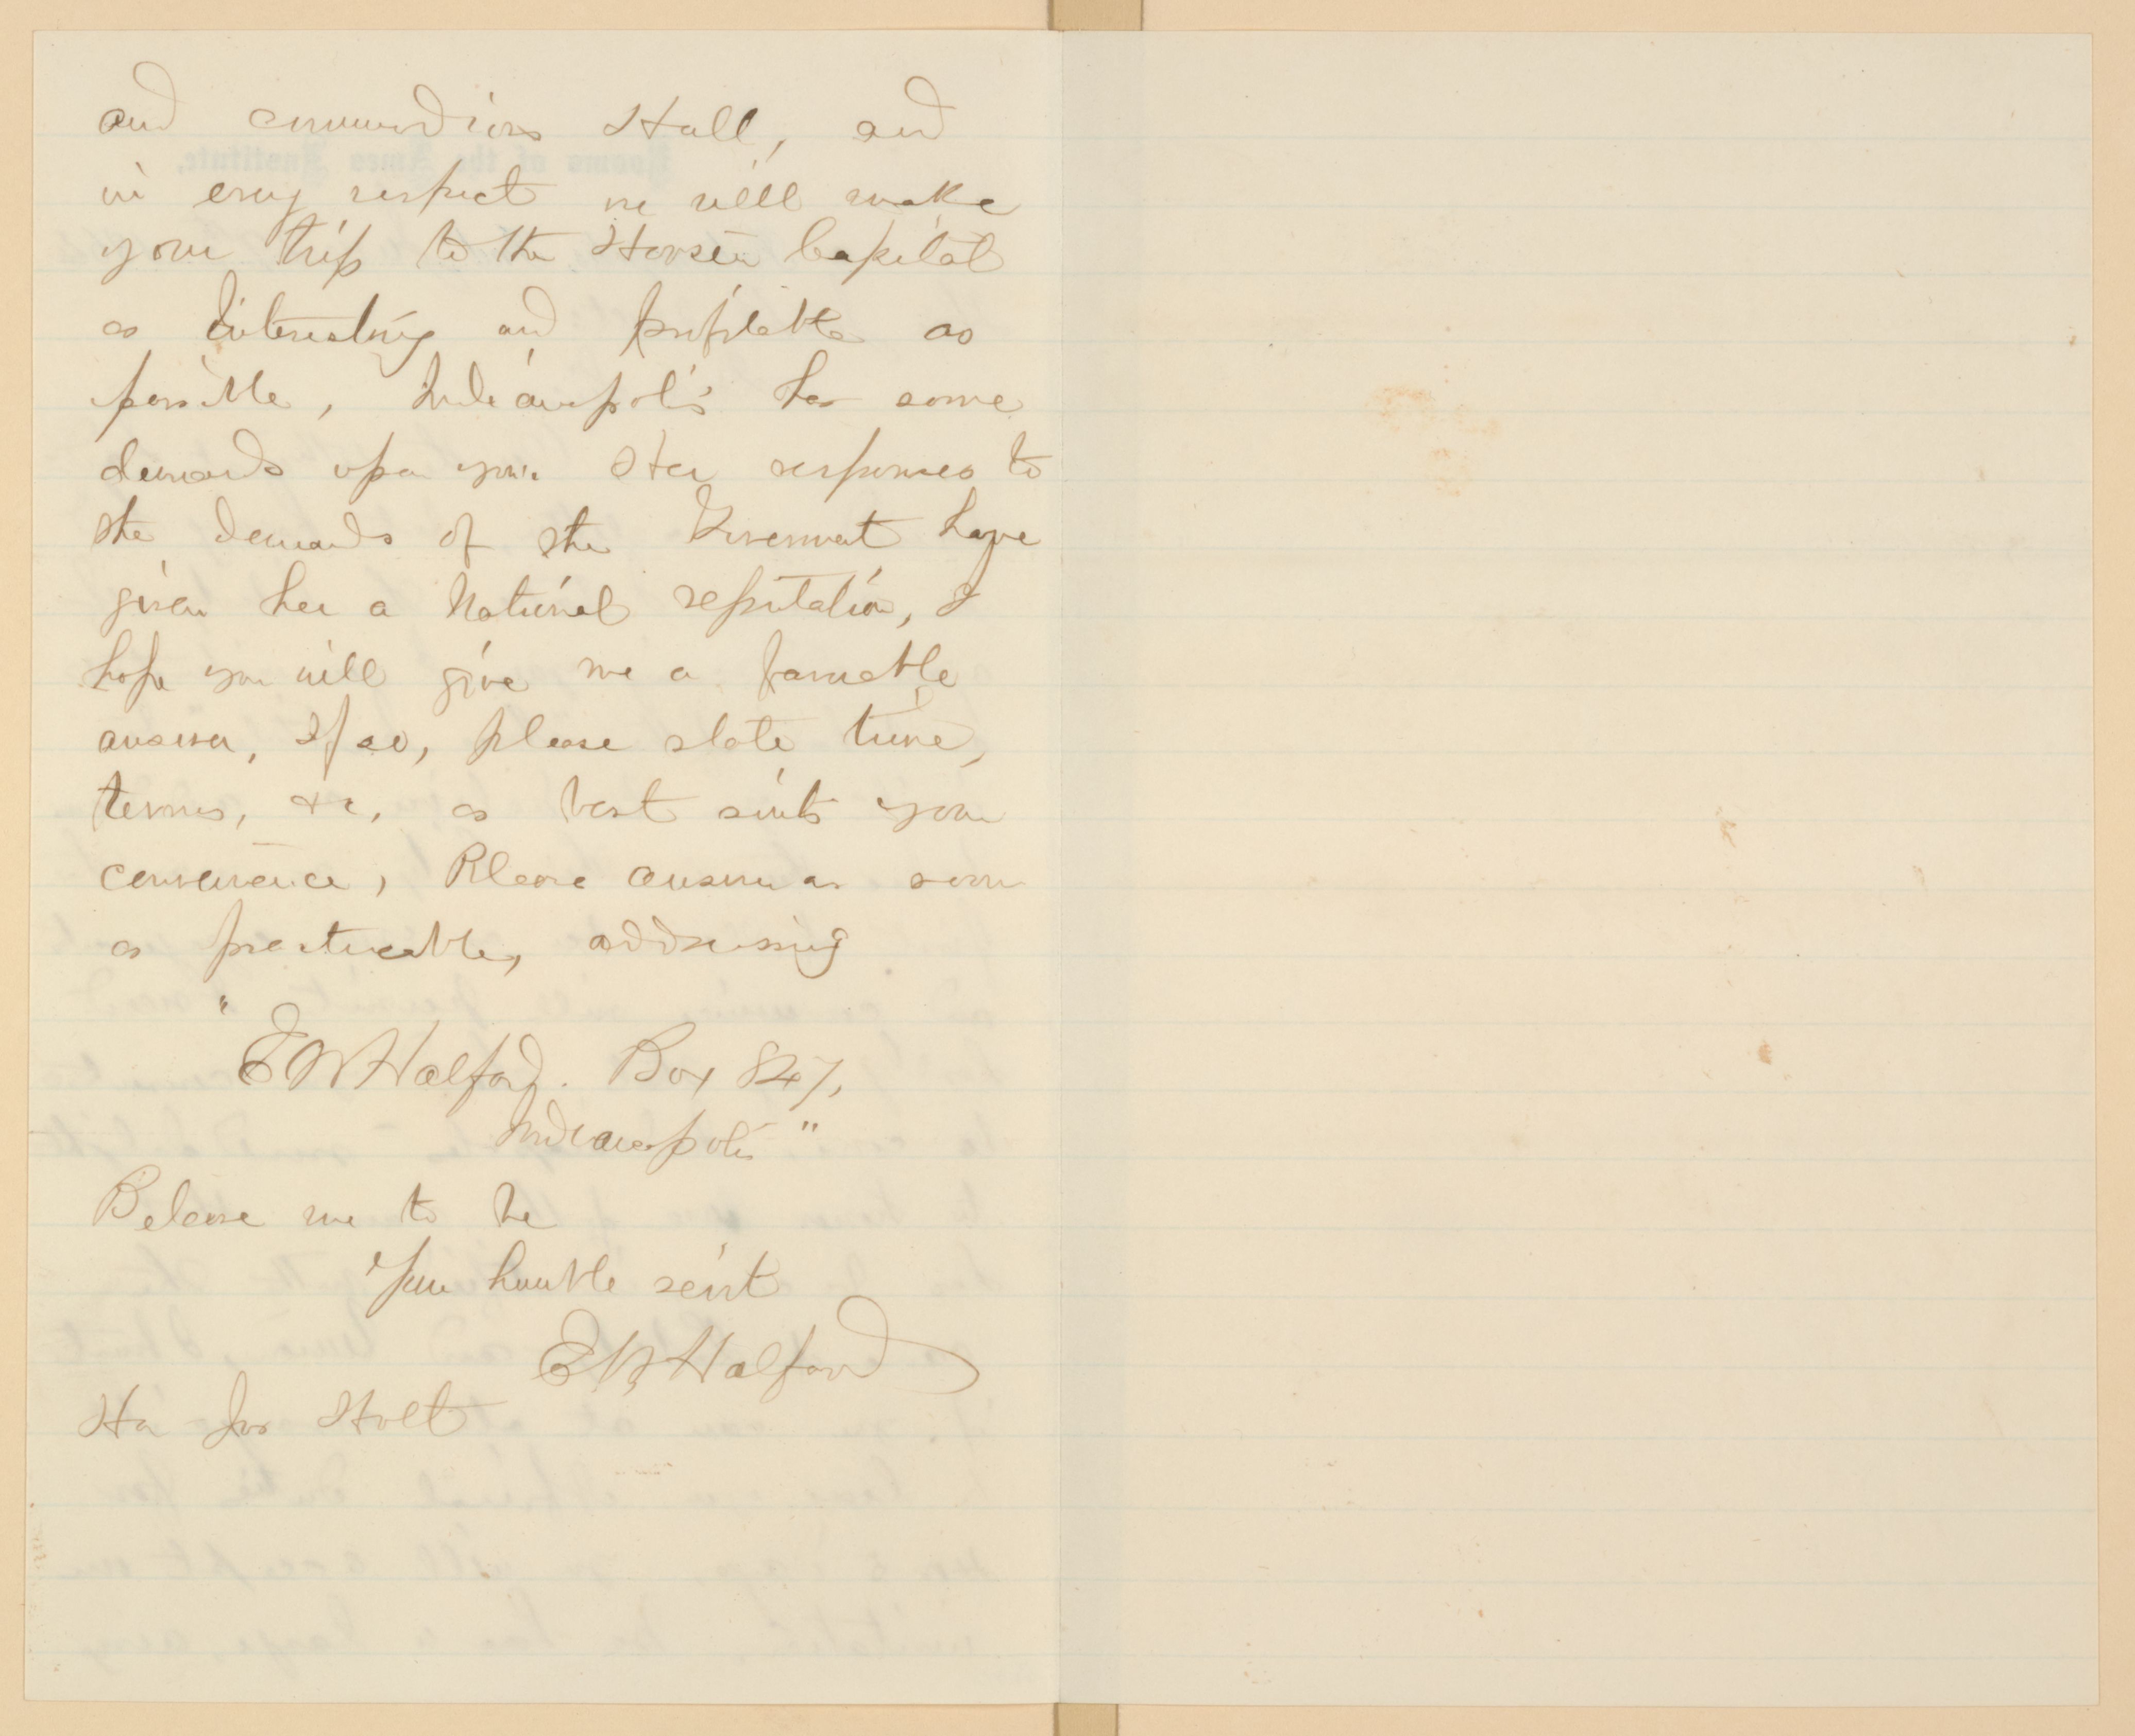 and commodious Hall, and
in every respect we will make
your trip to the Hoosier Capital
as interesting and profitable as
possible, Indianapolis has some
demands upon you. Her responses to
the demands of the Government have
given her a National reputation, I
hope you will give me a favorable
answer, If so, please state time,
terms, &c, as best suits your
convenience, Please answer as soon
as practicable, addressing
"E W Halford. Box 847,
Indianapolis"
Believe me to be
Your humble servt
E W Halford
Hon Jos Holt